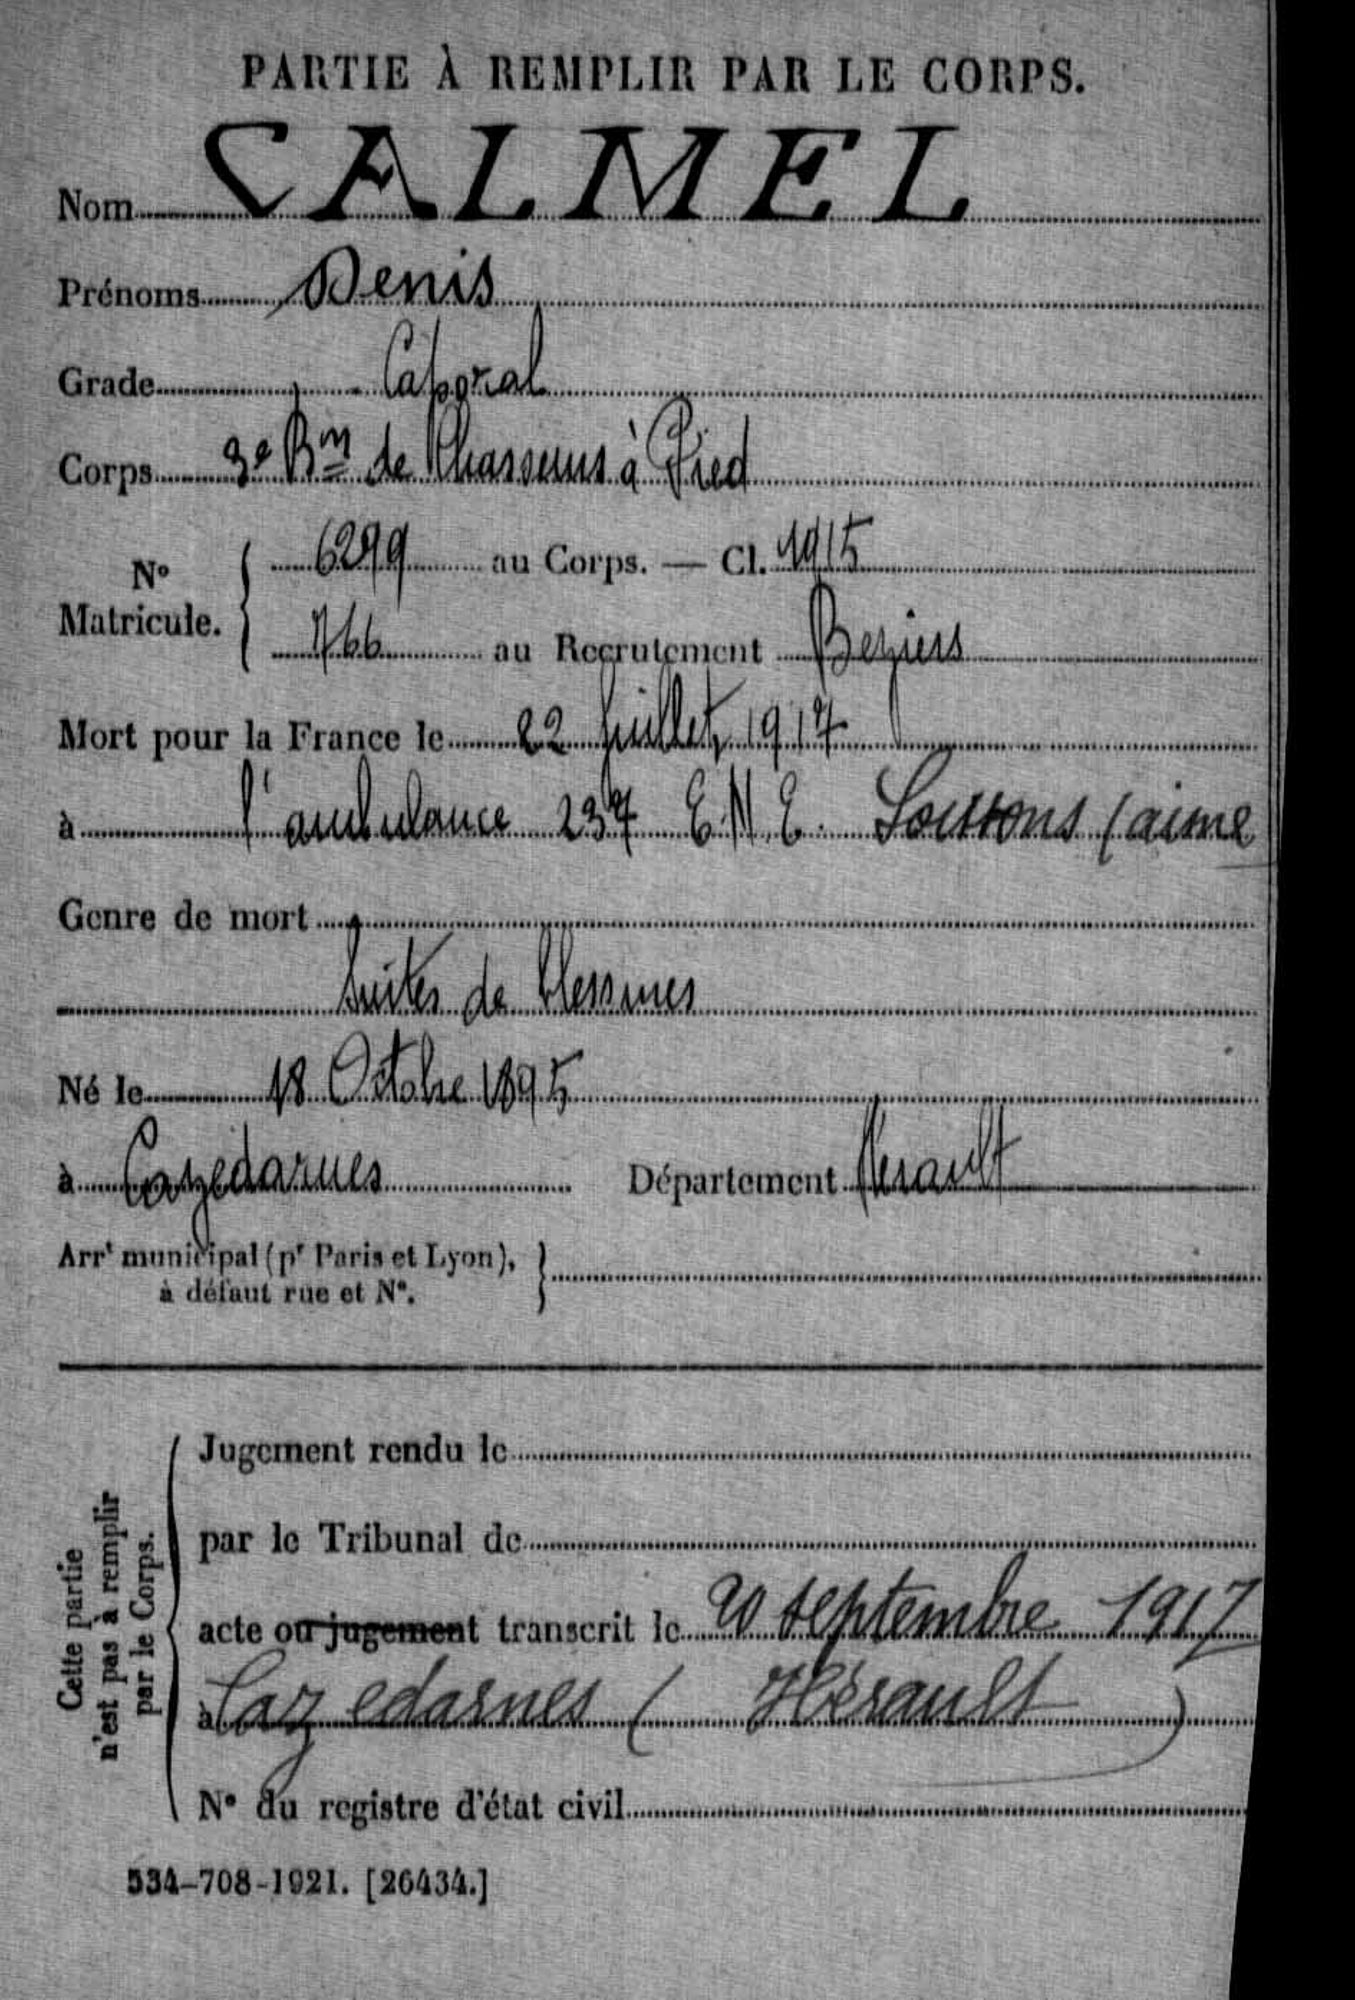 PARTIE À REMPLIR PAR LE CORPS.
Nom CALMEL
Prénoms Denis
Grade Caporal
Corps 3e Bm de Chasseurs à Pied
N° Matricule. 6299 au Corps. — Cl. 1915
766 au Recrutement Beziers
Mort pour la France le 22 Juillet 1917
à l'ambulance 237 E.N.E. Soissons (aisne
Genre de mort
Suites de blessures
Né le 18 Octobre 1895
à Cazedarnes Département Herault
Arrt municipal (pr Paris et Lyon),
à défaut rue et N°.
Cette partie n'est pas à remplir par le Corps.
Jugement rendu le
par le Tribunal de
acte ou jugement transcrit le 20 septembre 1917
à Cazedarnes (Hérault)
N° du registre d'état civil
534-708-1921. [26434.]